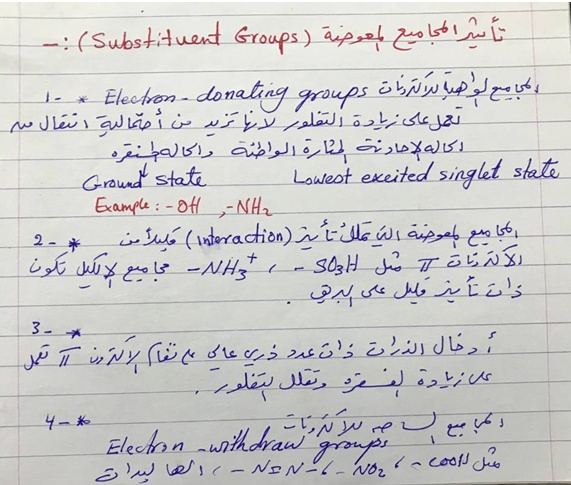 تأثير المجاميع المعوضة (Substituent Groups) :-
1- * Electron-donating groups المجاميع الواهبة للالكترونات
تعمل على زيادة التفلور لانها تزيد من احتمالية انتقال من
الحالة الاحادية المثارة الواطئة والحالة المستقره
Ground state Lowest excited singlet state
Example: -OH , -NH₂
2- * المجاميع المعوضة التي تملك تأثير (Interaction) قليلاً من
الالكترونات π مثل SO₃H - ، NH₃⁺ - مجاميع الالكيل تكون
ذات تأثير قليل على البريق .
3- *
أدخال الذرات ذات عدد ذري عالي على نظام الاكترون π تعمل
على زيادة الفسفره وتقلل التفلور .
4- *
المجاميع الساحبه للالكترونات
Electron-withdraw groups
مثل COOH - ، NO₂ - ، -N=N- ، الهاليدات